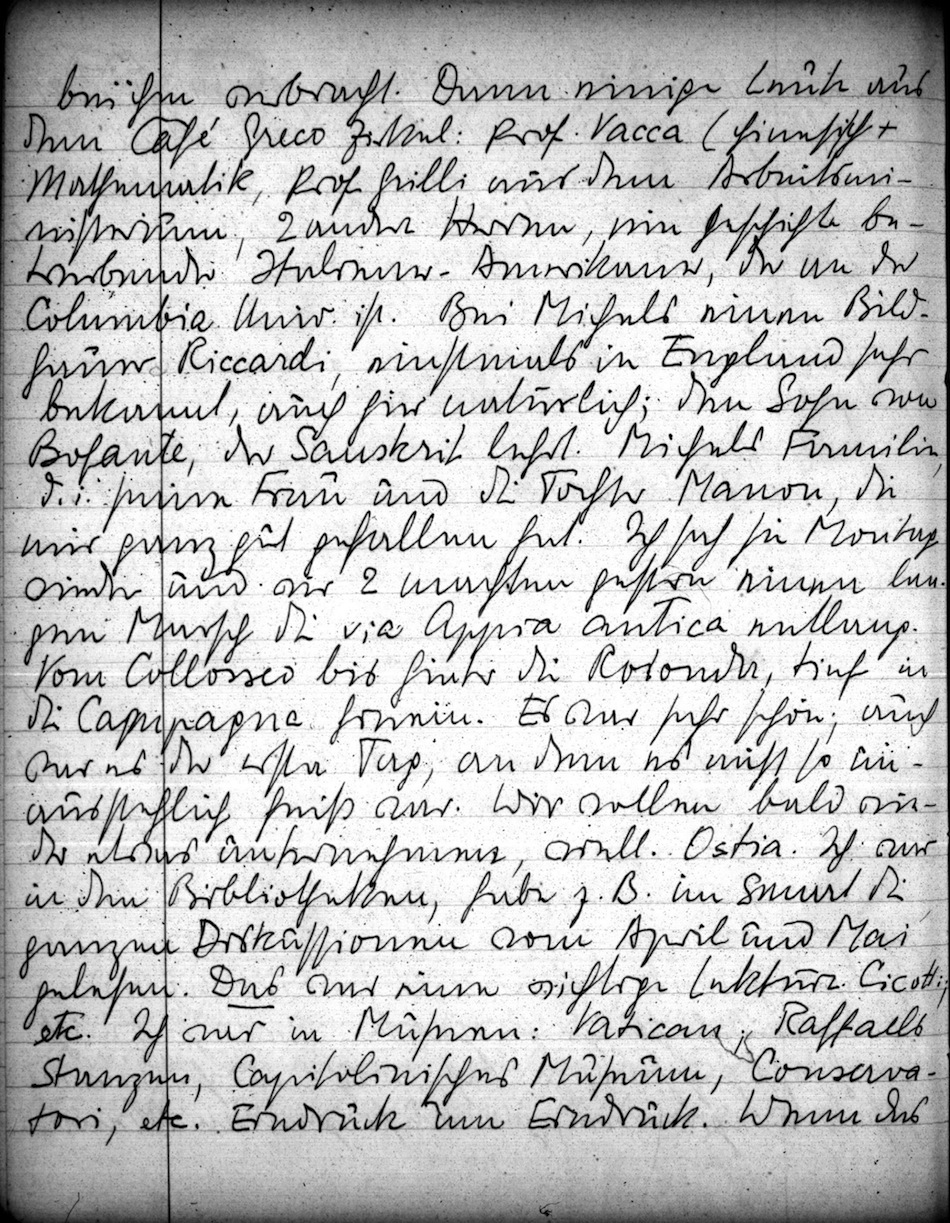 bei ihm verbracht. Dann einige Leute aus
dem Café Greco Zirkel: Prof. Vacca (chinesisch +
Mathematik, Prof. Grilli aus dem Arbeitsmi-
nisterium, 2 andere Herren, ein Geschichte be-
treibender Italiener-Amerikaner, der an der
Columbia Univ. ist. Bei Michels einen Bild-
hauer Riccardi, einstmals in England sehr
bekannt, auch hier natürlich; den Sohn von
Bosante, der Sanskrit lehrt. Michels Familie,
d. i. seine Frau und die Tochter Manon, die
mir ganz gut gefallen hat. Ich sah sie Montag
wieder und wir 2 machten gestern einen lan-
gen Marsch die via Appia antica entlang.
Vom Collosseo bis hinter die Rotonda, tief in
die Campagna hinein. Es war sehr schön; auch
war es der erste Tag, an dem es nicht so un-
ausstehlich heiß war. Wir wollen bald wie-
der etwas unternehmen, evtl. Ostia. Ich war
in den Bibliotheken, habe z. B. im Senat die
ganzen Diskussionen vom April und Mai
gelesen. Das war eine wichtige Lektüre. Cicotti,
etc. Ich war in Museen: Vatican; Raffaels
Stanzen, Capitolinisches Museum, Conserva-
tori, etc. Eindruck um Eindruck. Wenn das